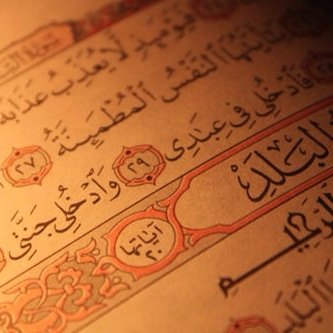 سورة
فَيَوْمَئِذٍ لَّا يُعَذِّبُ عَذَابَهُ
يَٰٓأَيَّتُهَا ٱلنَّفْسُ ٱلْمُطْمَئِنَّةُ ٢٧
فَٱدْخُلِى فِى عِبَٰدِى ٢٩ وَٱدْخُلِى جَنَّتِى
البَلَدِ آيَاتُهَا ٢٠
ٱلرَّحِيمِ
ٱلْبَلَدِ